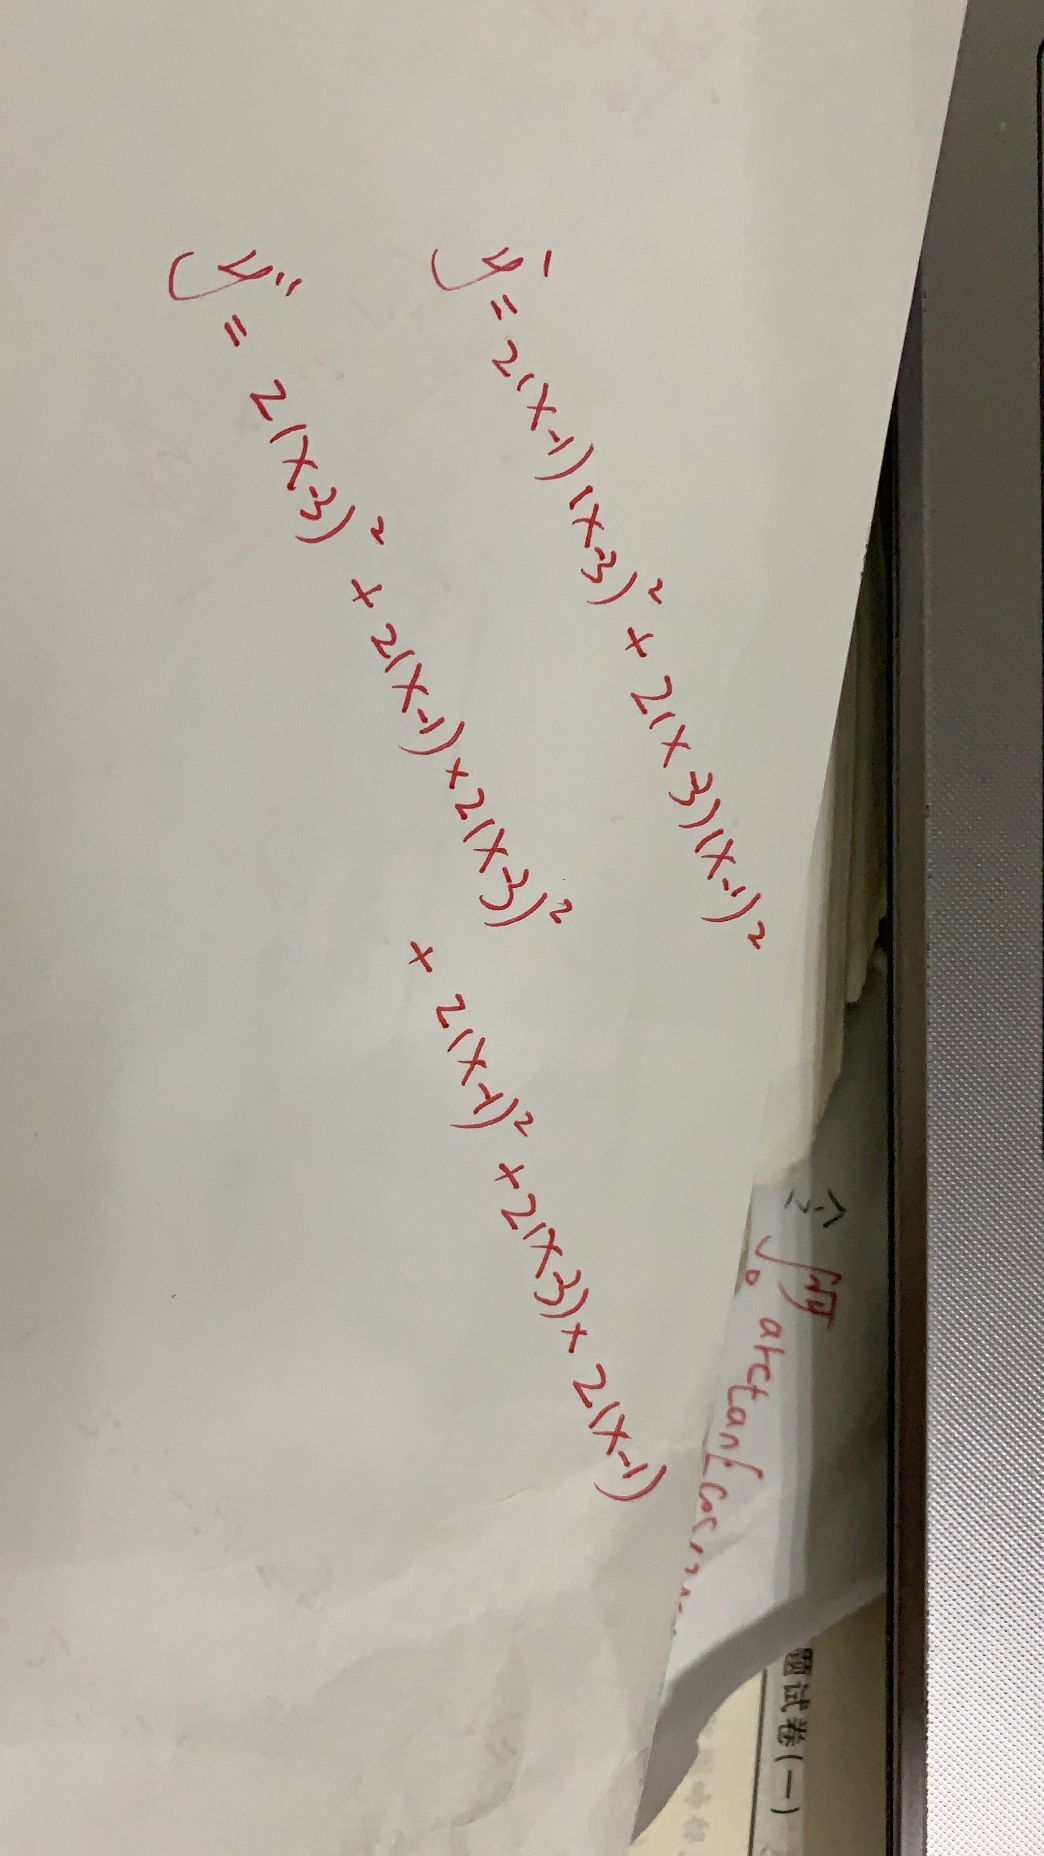 y' = 2(x-1)(x-3)² + 2(x-3)(x-1)²
y'' = 2(x-3)² + 2(x-1)×2(x-3)²
+ 2(x-1)² + 2(x-3)× 2(x-1)
arctan[cos
题试卷(一)